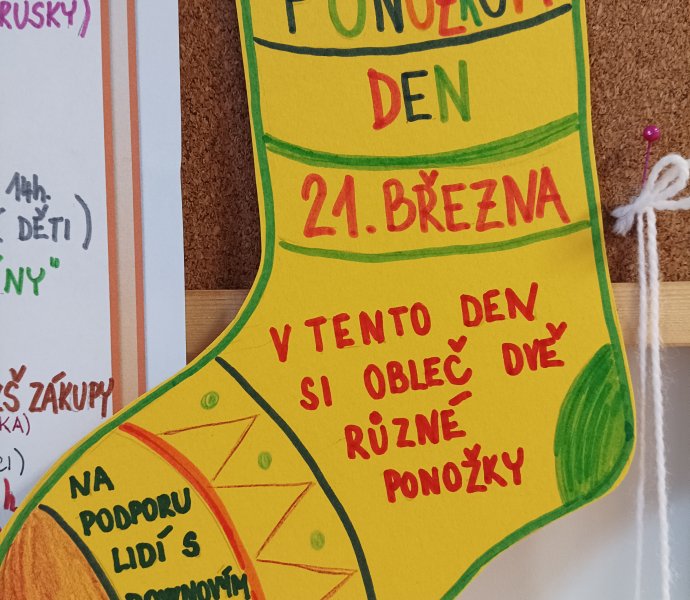 RUSKY)
14h.
DĚTI)
NY"
ZÁKUPY
KA)
h
PONOŽKOVÝ
DEN
21. BŘEZNA
V TENTO DEN
SI OBLEČ DVĚ
RŮZNÉ
PONOŽKY
NA
PODPORU
LIDÍ S
DOWNOVÝM